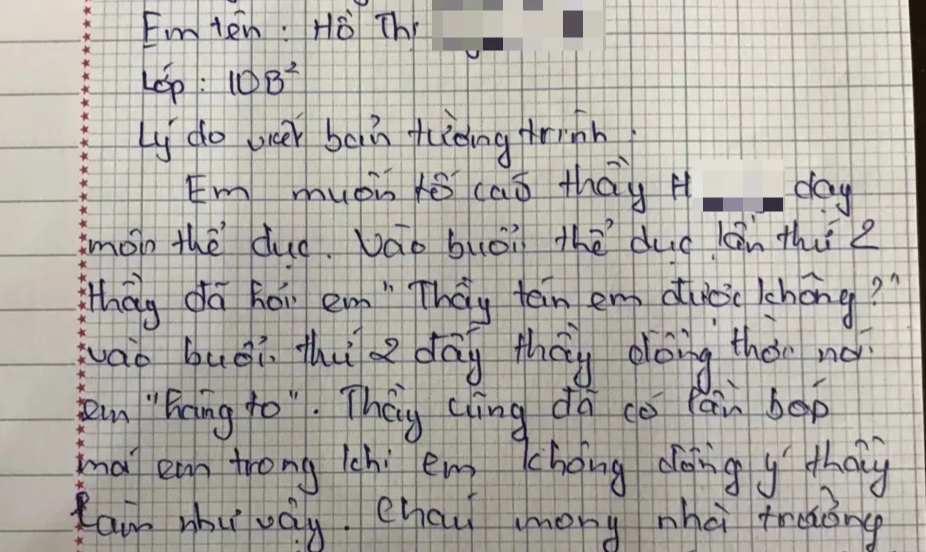 Em tên : Hồ Thị
Lớp : 10B²
Lý do viết bản tường trình :
Em muốn tố cáo thầy H dạy
môn thể dục. Vào buổi thể dục lần thứ 2
thầy đã hỏi em "Thầy tán em được không?"
vào buổi thứ 2 đấy thầy đồng thời nói
em "hàng to". Thầy cũng đã có lần bóp
má em trong khi em không đồng ý thầy
làm như vậy. Cháu mong nhà trường